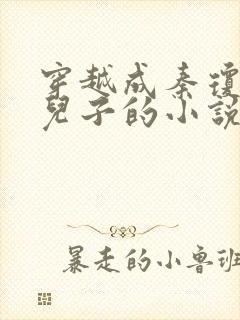 穿越成秦瓊
兒子的小說
暴走的小魯班